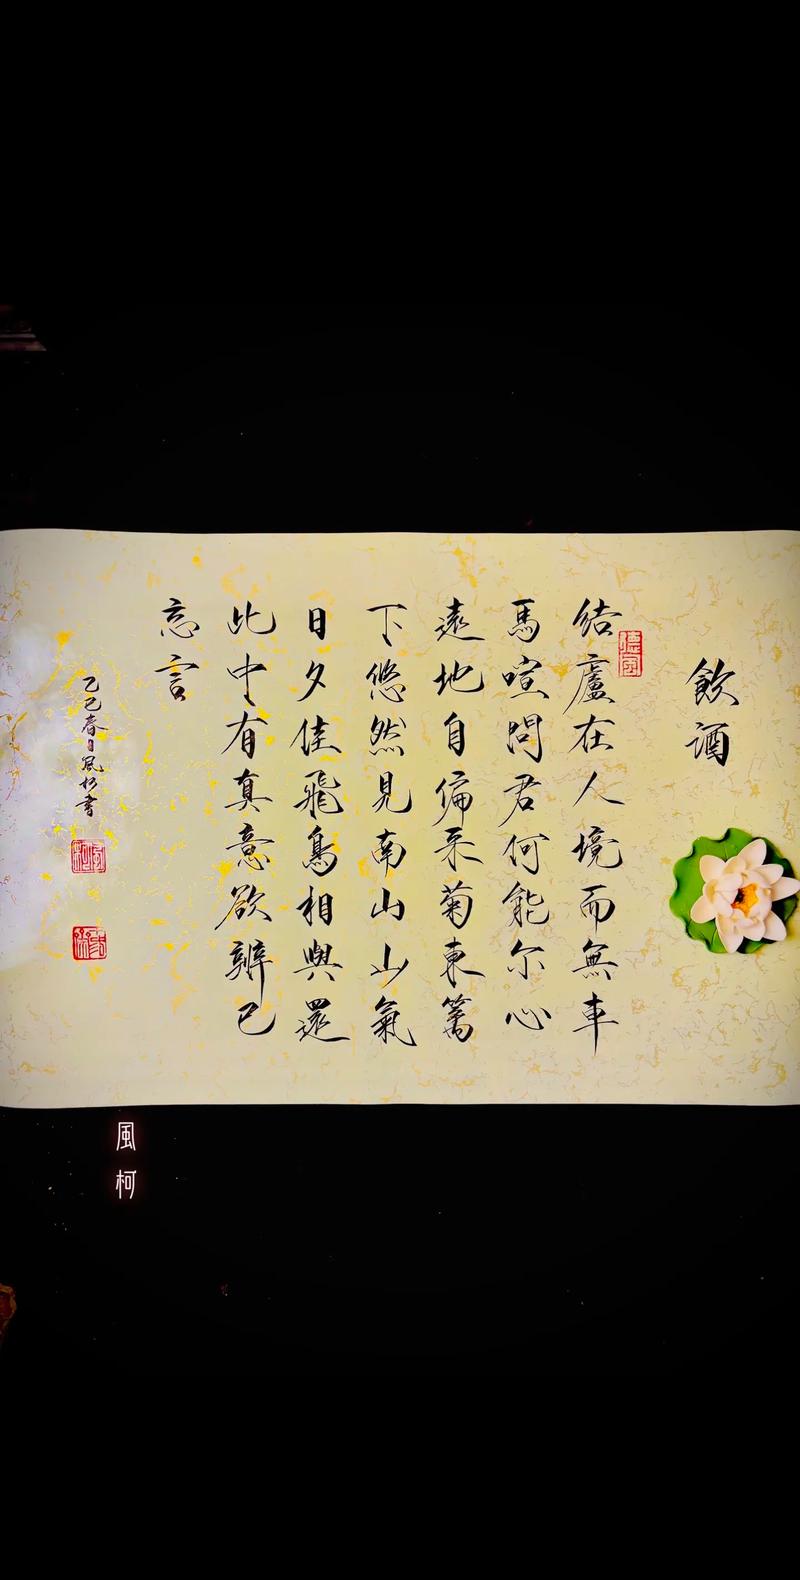 飲酒
結廬在人境而無車
馬喧問君何能尔心
遠地自偏采菊東篱
下悠然見南山山氣
日夕佳飛鳥相與還
此中有真意欲辨已
忘言
乙巳春日風柯書
風柯